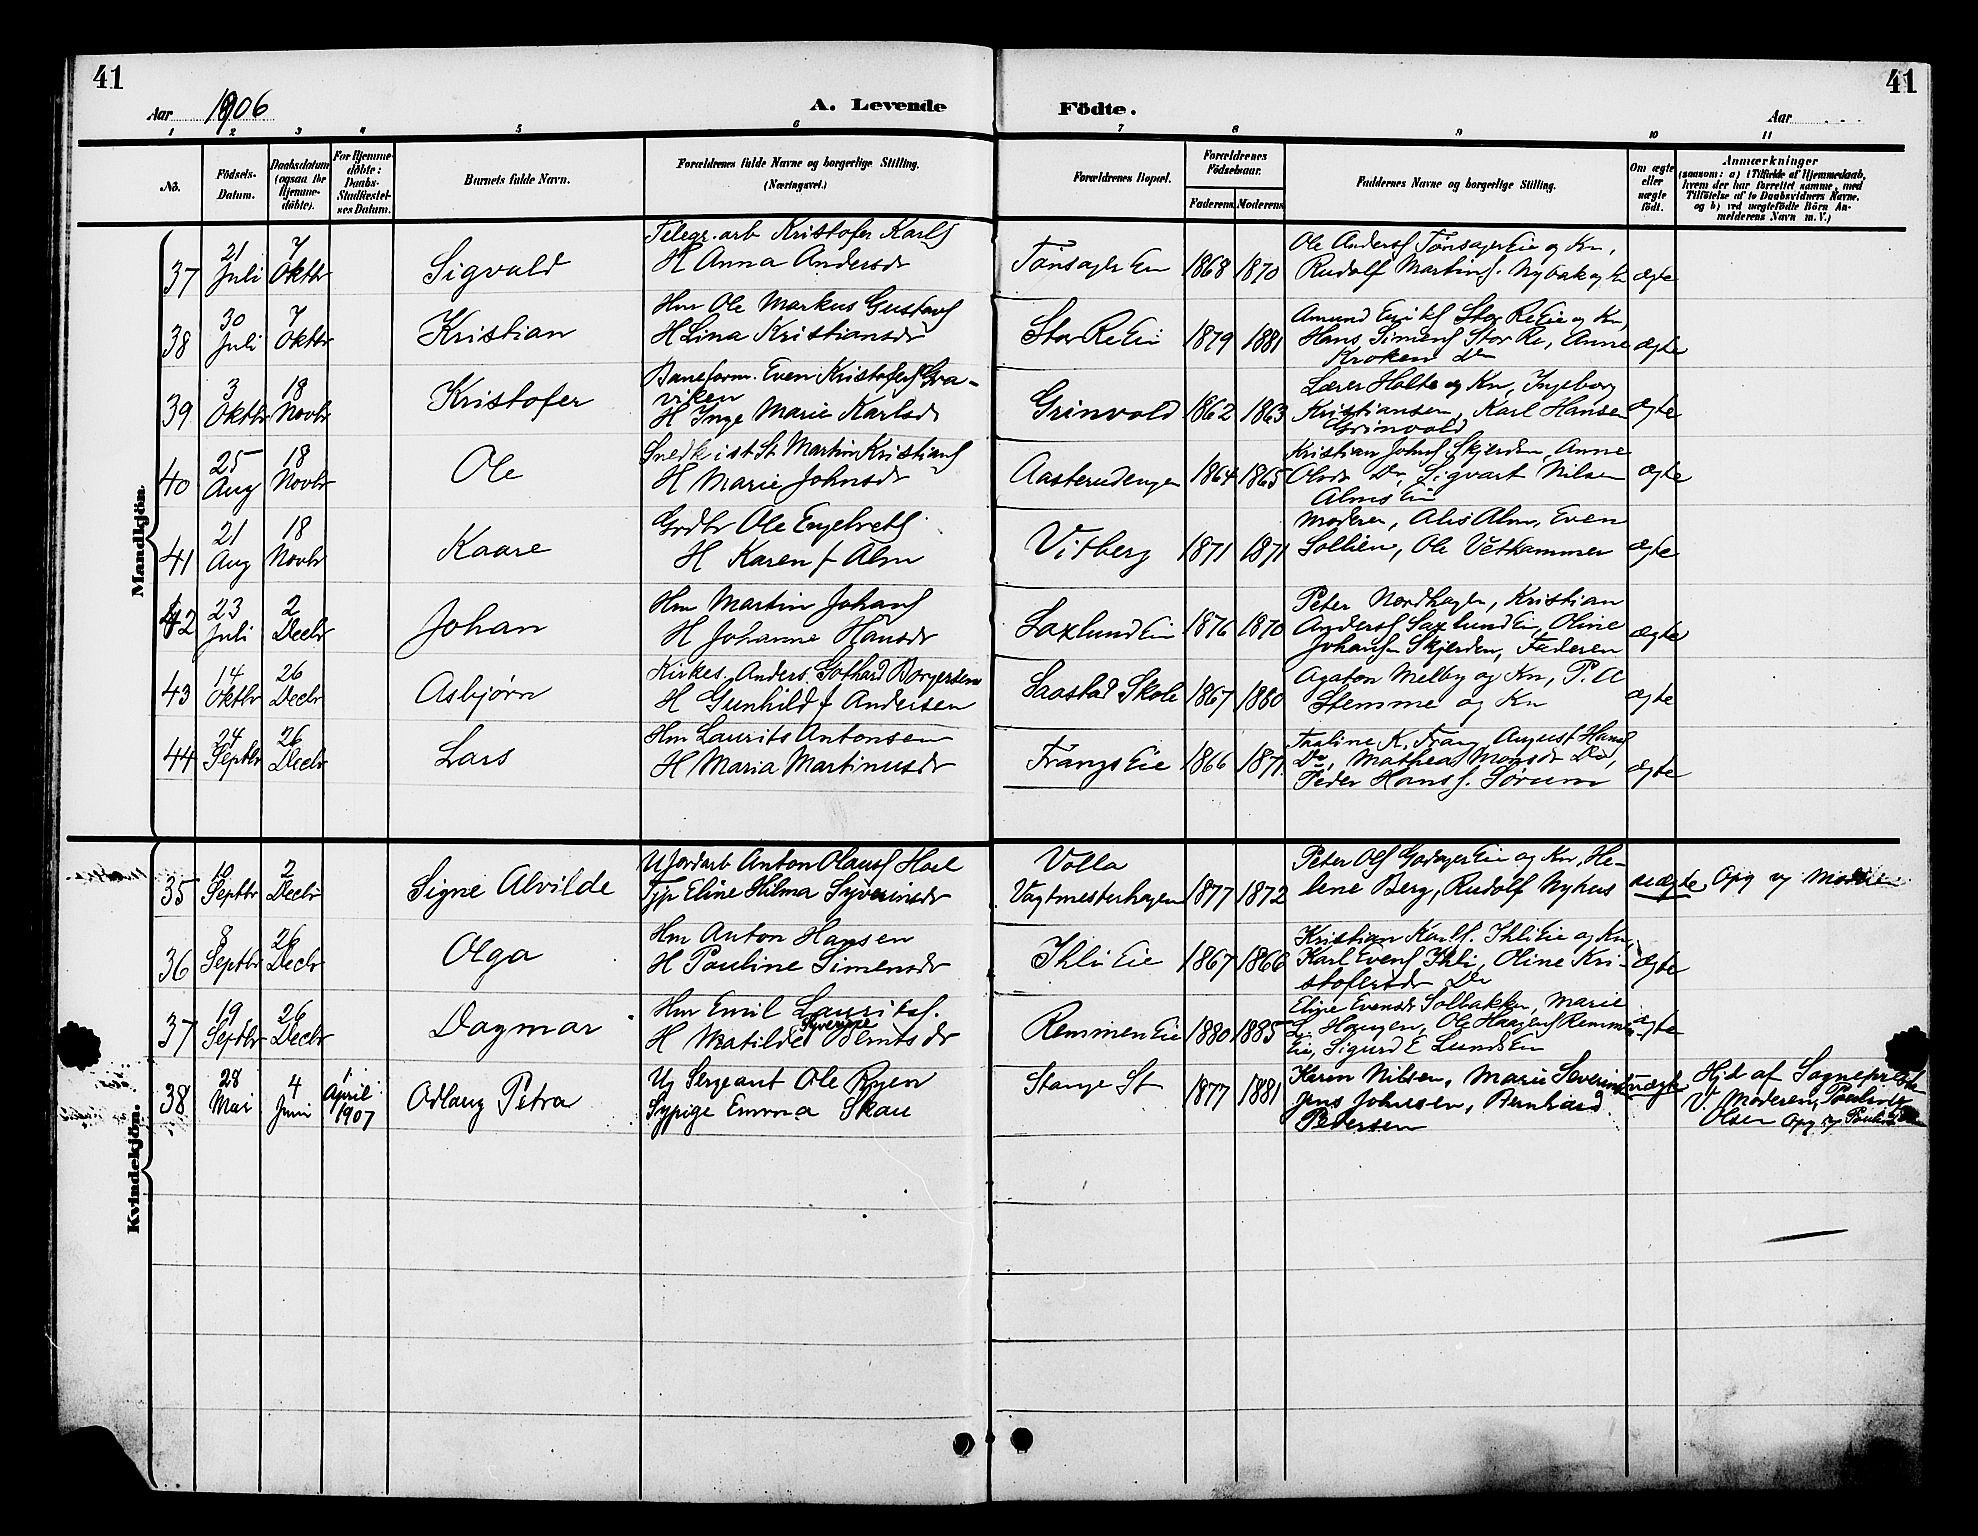 41
41
Aar 1906
A. Levende
Födte.
Aar
1 2 3 4 5 6 7 8 9 10 11
No.
Födsels-
Datum.
Daabsdatum
(ogsaa for
Hjemme-
döbte).
For Hjemme-
döbte:
Daabs-
Stadfæstel-
ses Datum.
Barnets fulde Navn.
Forældrenes fulde Navne og borgerlige Stilling.
(Næringsvei.)
Forældrenes Bopæl.
Forældrenes
Födselsaar.
Faderens
Moderens
Faddernes Navne og borgerlige Stilling.
Om ægte
eller
uægte
födt.
Anmærkninger
(saasom: a) i Tilfælde af Hjemmedaab,
hvem der har forrettet samme, med
Tilföielse af to Daabsvidners Navne,
og b) ved uægtefödte Börn An-
melderens Navn m. V.)
Mandkjön
37
21
Juli
7
Oktbr
Sigvald
Telegr. arb Kristofer Karls
H Anna Andersdr
Tønsager Eie
1868
1870
Ole Anders Tønsager Eie og Kn,
Rudolf Martins. Nybak og
ægte
38
30
Juli
7
Oktbr
Kristian
Hm Ole Markus Gustavs
H Lina Kristiansdr
Stor Re Eie
1879
1881
Amund Eriks Stor Re Eie og Kn,
Hans Simens Stor Re, Anne
Kroken
ægte
39
3
Oktbr
18
Novbr
Kristofer
Baneform. Even Kristofers Gra-
viken
H Inge Marie Karlsdr
Grinvold
1862
1863
Lærer Holte og Kn, Ingeborg
Kristiansen, Karl Hansen
Grinvold
ægte
40
25
Aug
18
Novbr
Ole
Snedk i st St Martin Kristians
H Marie Johnsdr
Aasterudengen
1864
1865
Kristian Johns Skjerden, Anne
Olsdr Do, Sigvart Nilsen
Alms Eie
ægte
41
21
Aug
18
Novbr
Kaare
Grdbr Ole Engebrets
H Karen f Alm
Vitberg
1871
1871
Moderen, Alis Alm, Even
Sollien, Ole Vetkammer
ægte
42
23
Juli
2
Decbr
Johan
Hm Martin Johans
H Johanne Hansdr
Saxlund Eie
1876
1870
Peter Nordhagen, Kristian
Anders Saxlund Eie, Oline
Johansen Skjerden, Faderen
ægte
43
14
Oktbr
26
Decbr
Asbjørn
Kirkes. Anders. Gothard Borgersen
H Gunhild f Andersen
Saastad Skole
1867
1880
Agaton Melby og Kn, P. A
Stemme og Kn
ægte
44
24
Septbr
26
Decbr
Lars
Hm Laurits Antonsen
H Maria Martinusdr
Frangs Eie
1866
1871
K. Frang August Hans
Do, Mathea Mons dr Do,
Peder Hans s. Sørum
ægte
Kvindekjön.
35
Septbr
2
Decbr
Signe Alvilde
Anton Olaus
Eline Hilma Syverinsdr
Volla
Vagtmesterhagen
1877
1872
Peter Ols Eie og Kn, He-
lene Berg, Rudolf Nyhus
uægte
Opg
36
8
Septbr
26
Decbr
Olga
Hm Anton Hansen
H Pauline Simensdr
Ihli Eie
1867
1866
Kristian Karls. Ihli Eie og Kn,
Karl Evens Ihli, Oline Kri-
stofersdr Do
ægte
37
19
Septbr
26
Decbr
Dagmar
Hm Emil Laurits s.
Syverine
H Matilde Berntsdr
Remmen Eie
1880
1885
Eline Evensdr Solbakken, Marie
L. Haugen, Ole Haagens Remmen
Eie, Sigurd E Lunds Eie
ægte
38
28
Mai
4
Juni
1
April
1907
Odlaug Petra
Ug Sergeant Ole Ryen
Sypige Emma Skau
Stange St
1877
1881
Karen Nilsen, Marie Severinsen
Jens Johnsen, Bernhard
Pedersen
uægte
Hjd af Sognepresten
V. Moderen,
Olsen Opg